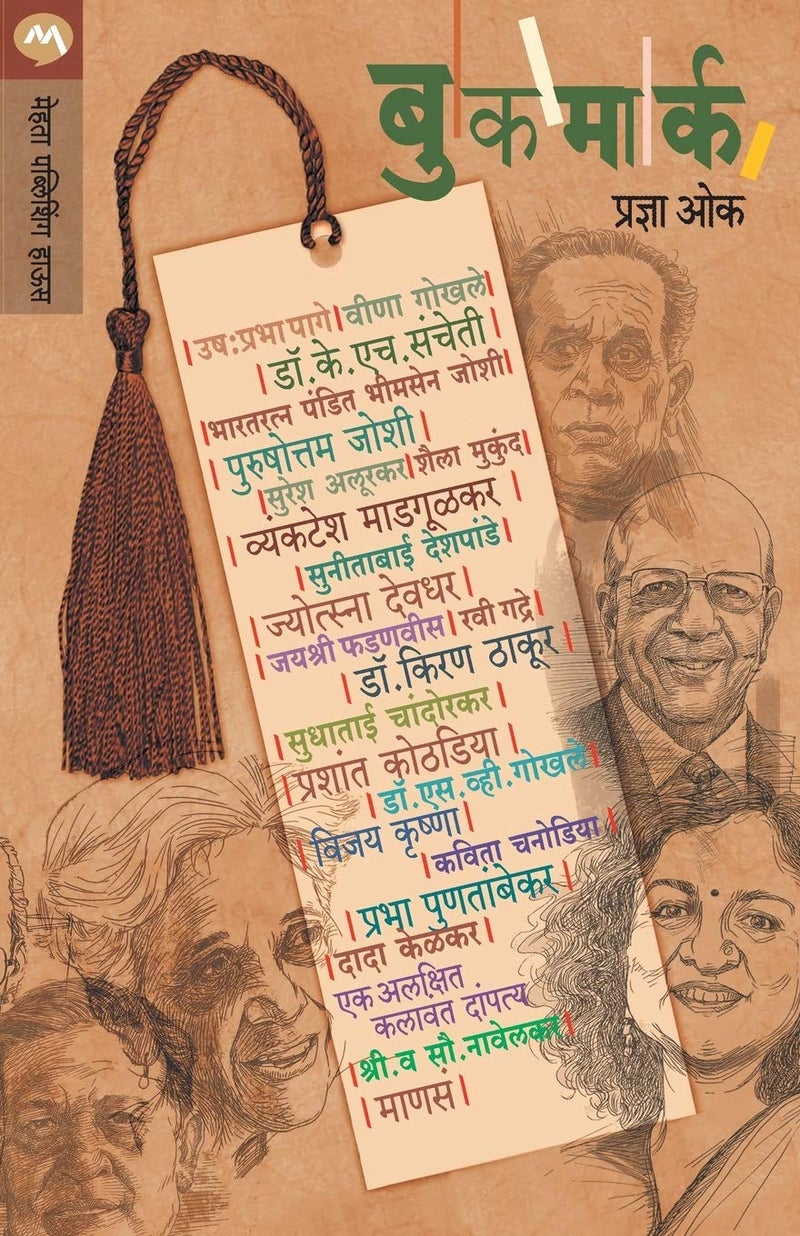 मेहता पब्लिशिंग हाऊस
बुकमार्क
प्रज्ञा ओक
|उष:प्रभा पागे|वीणा गोखले|
|डॉ.के.एच.संचेती|
|भारतरत्न पंडित भीमसेन जोशी|
|पुरुषोत्तम जोशी|
|सुरेश अलूरकर|शैला मुकुंद|
|व्यंकटेश माडगूळकर|
|सुनीताबाई देशपांडे|
|ज्योत्स्ना देवधर|
|जयश्री फडणवीस|रवी गद्रे|
|डॉ.किरण ठाकूर|
|सुधाताई चांदोरकर|
|प्रशांत कोठडिया|
|डॉ.एस.व्ही.गोखले|
|विजय कृष्णा|
|कविता चनोडिया|
|प्रभा पुणतांबेकर|
|दादा केळकर|
एक अलक्षित
कलावंत दांपत्य
|श्री.व सौ.नावेलकर|
|माणसं|